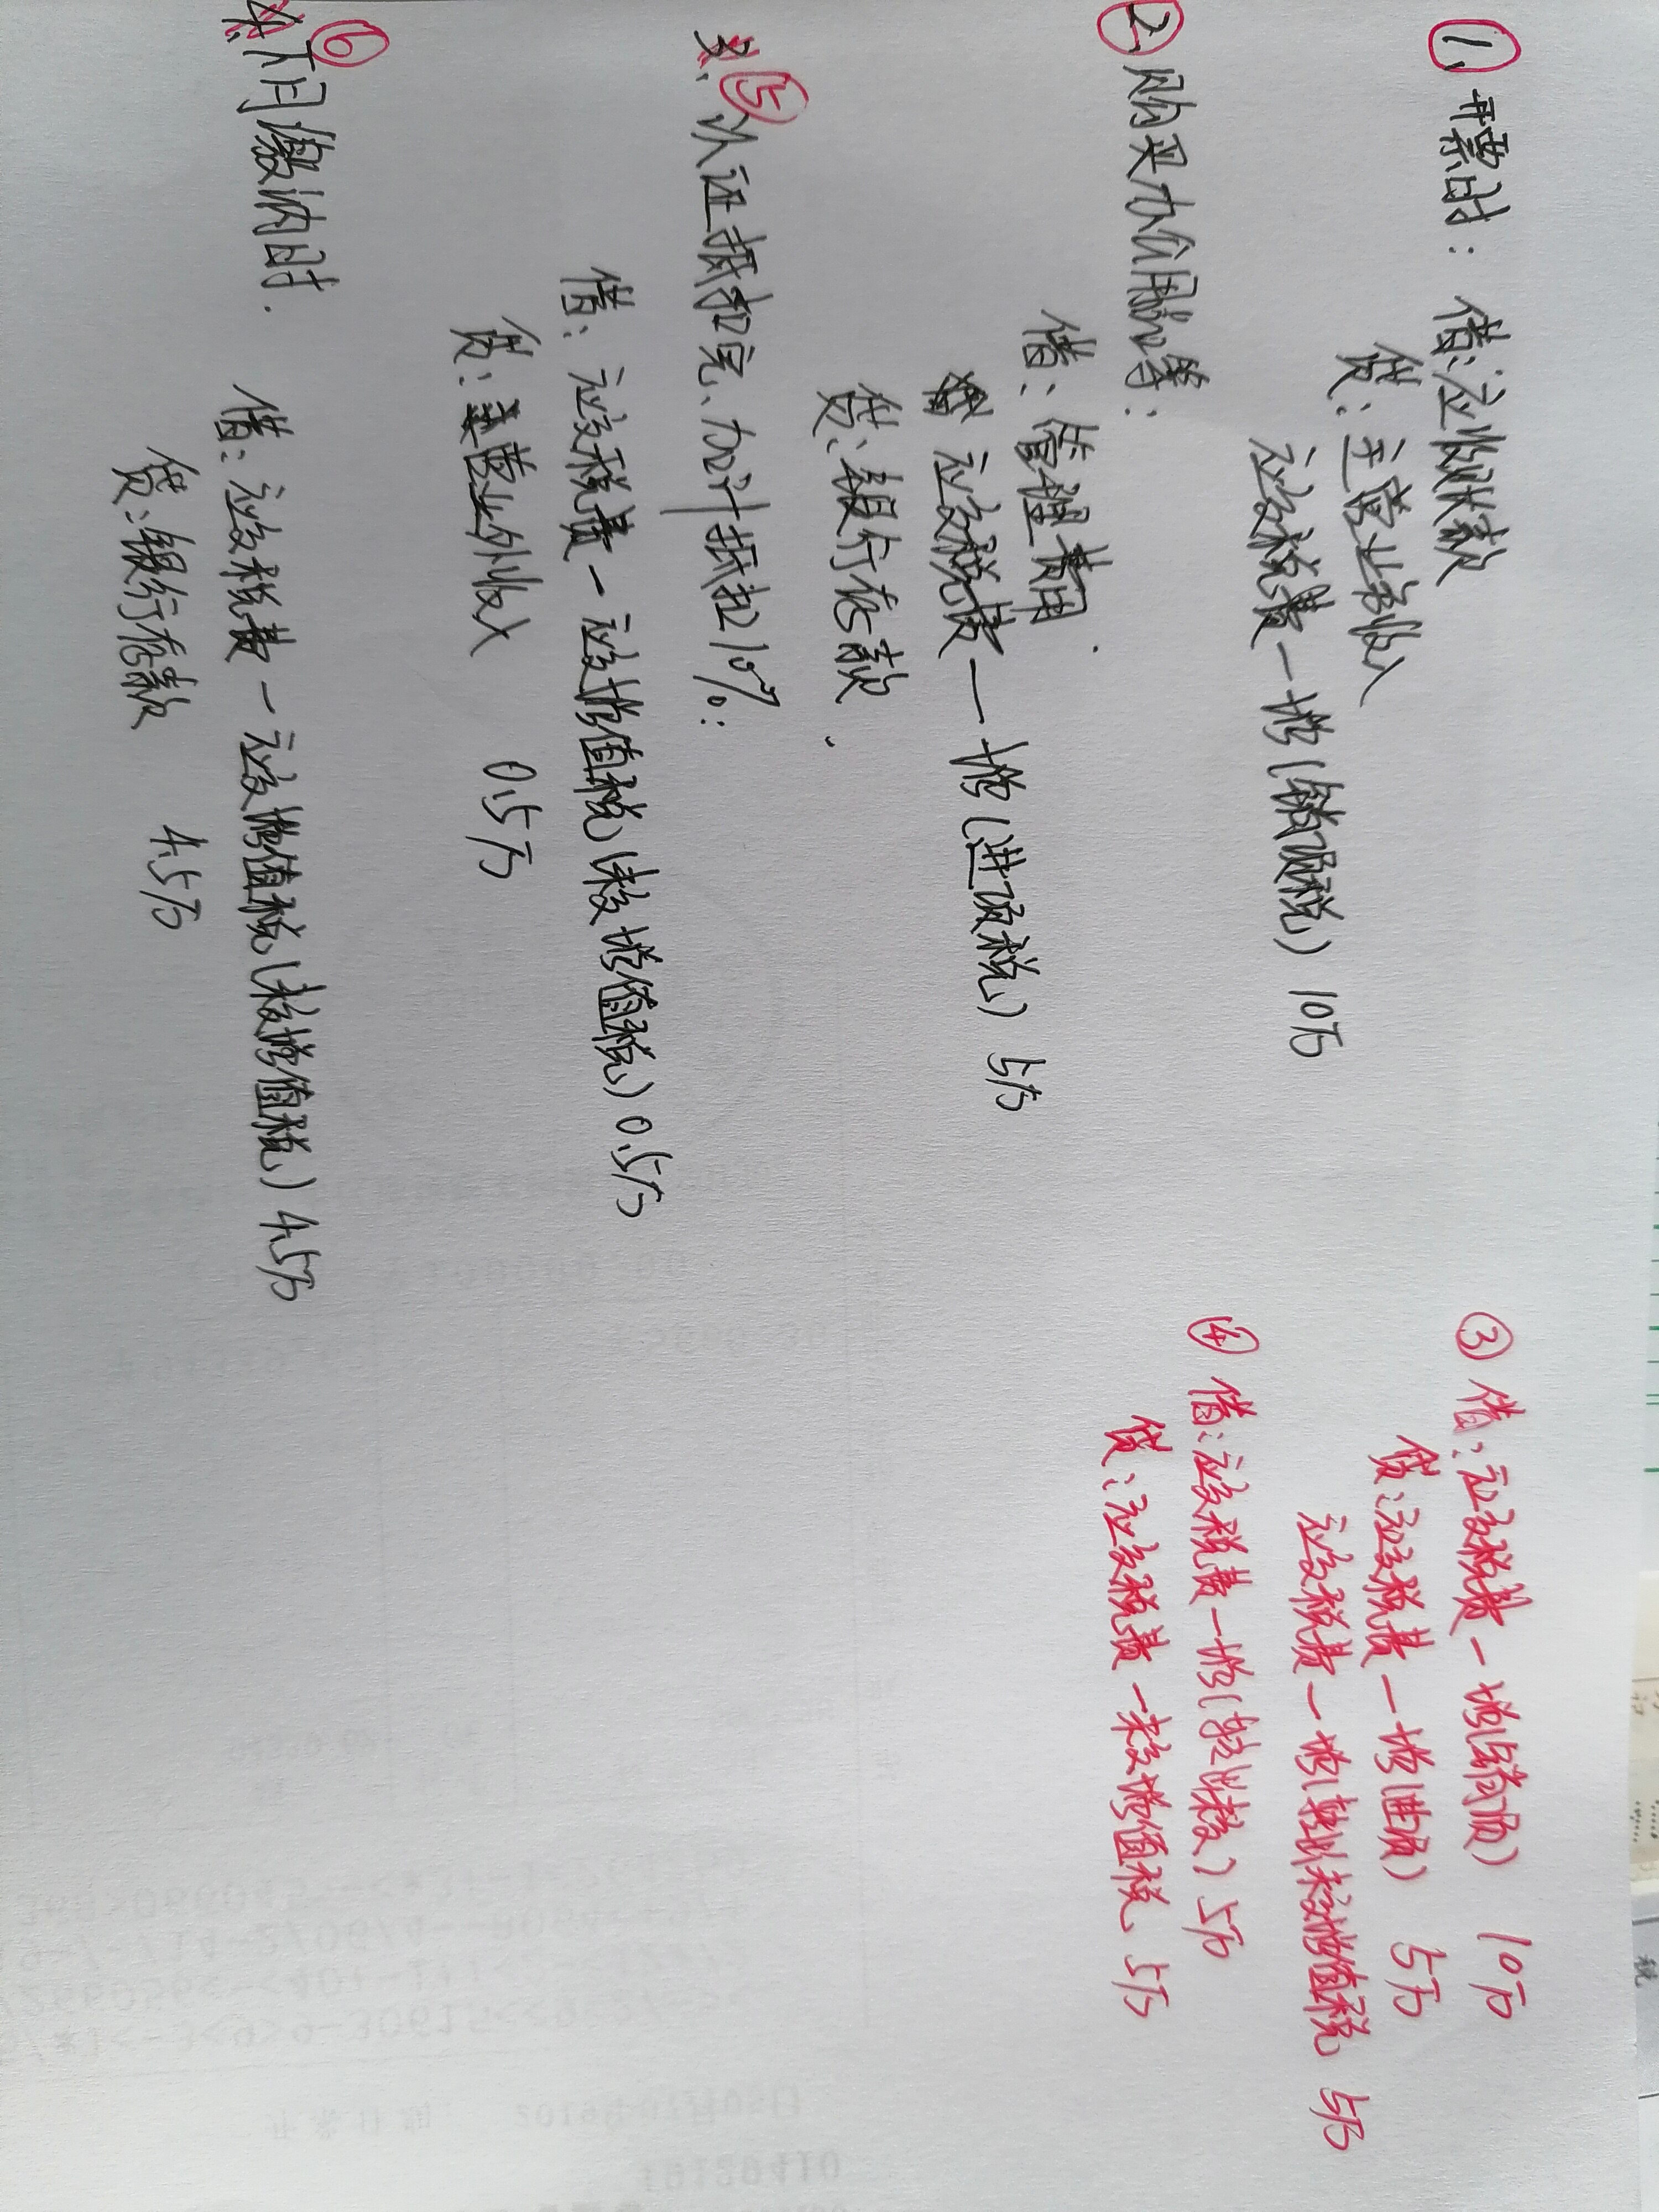 1、开票时：借：应收账款
贷：主营业务收入
应交税费—增(销项税) 10万
2、购买办公用品等：
借：管理费用
应交税费—增(进项税) 5万
贷：银行存款
⑤ 认证抵扣完、加计抵扣10%：
借：应交税费—应交增值税(未交增值税) 0.5万
贷：营业外收入 0.5万
⑥ 下月缴纳时.
借：应交税费—应交增值税(未交增值税) 4.5万
贷：银行存款 4.5万
③ 借：应交税费—增(销项) 10万
贷：应交税费—增(进项) 5万
应交税费—增(转出未交增值税 5万
④ 借：应交税费—增(转出未交) 5万
贷：应交税费—未交增值税 5万